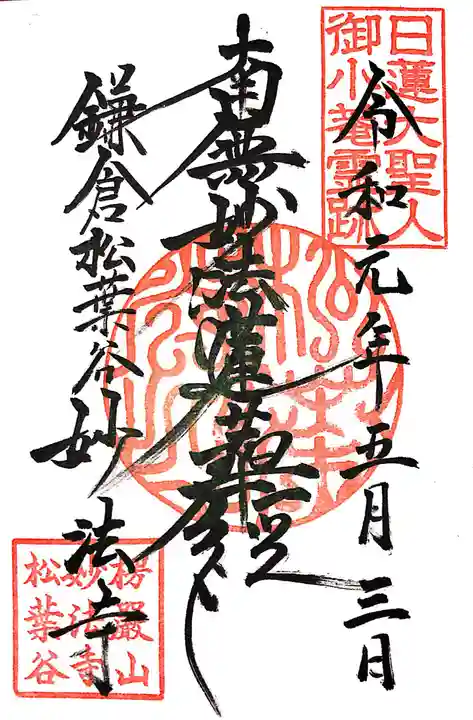 日蓮大聖人
御小菴霊跡
令和元年五月三日
南無妙法蓮華経
鎌倉松葉谷妙法寺
楞厳山
妙法寺
松葉谷